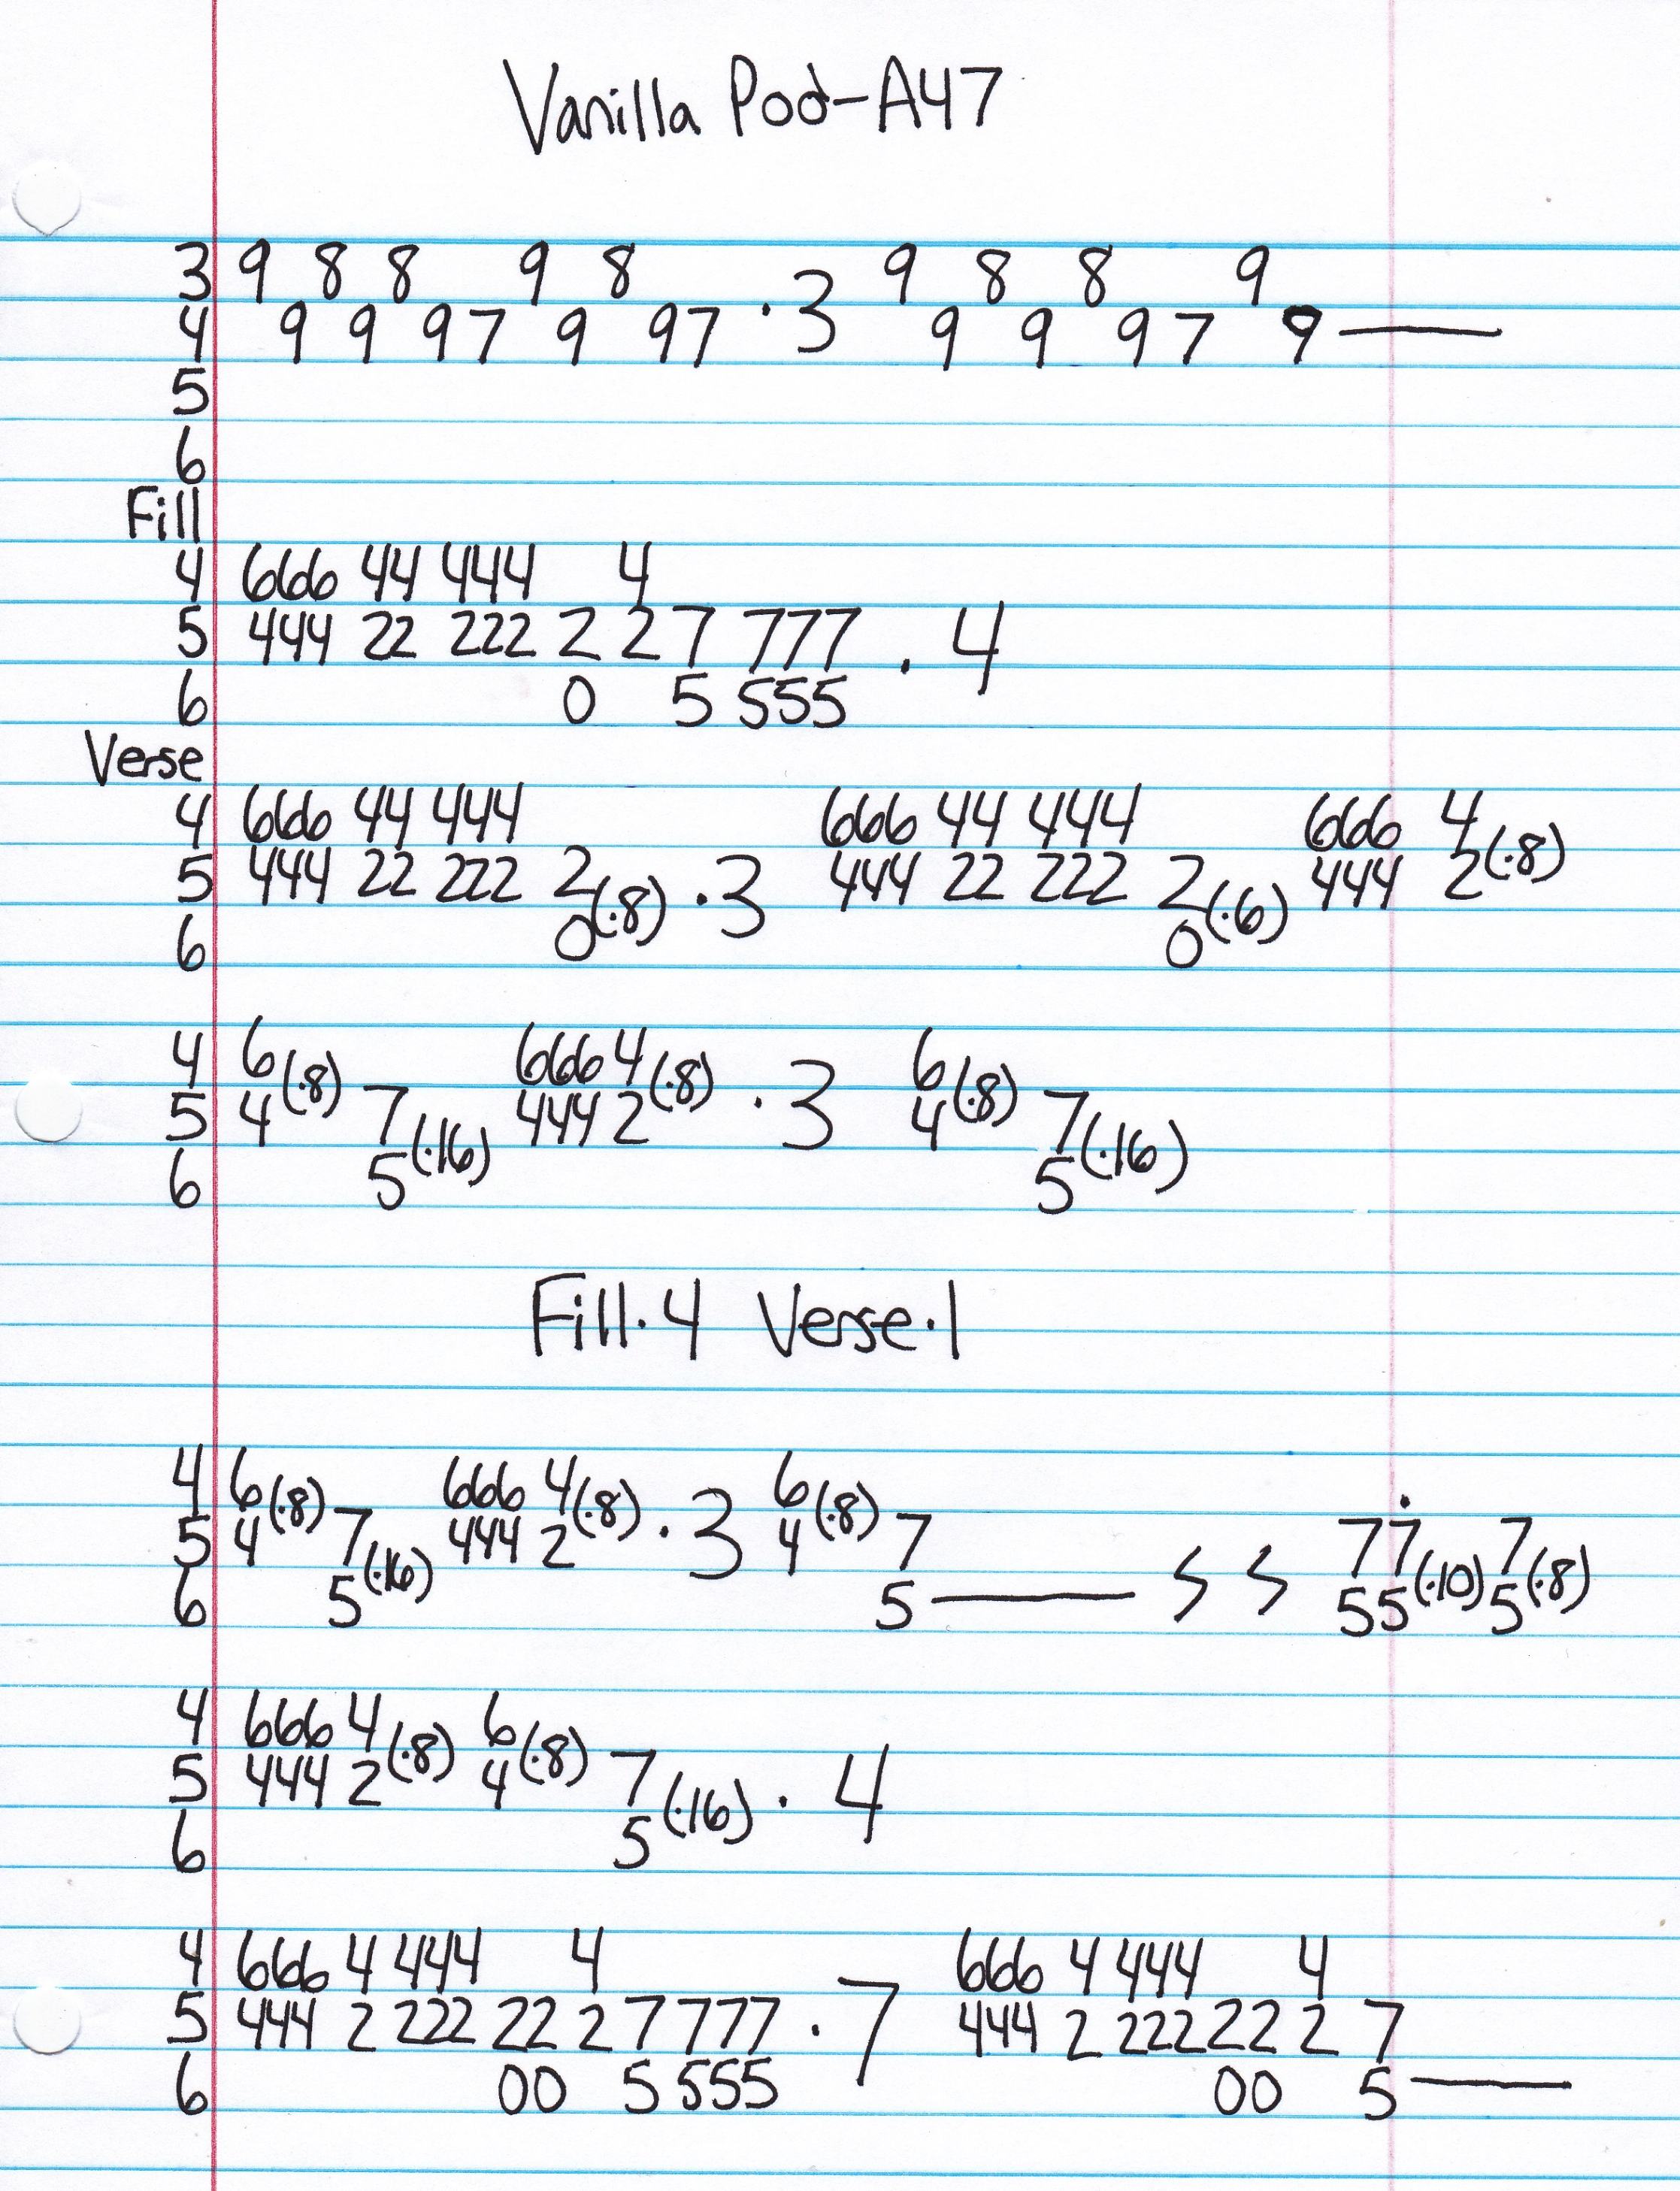 Vanilla Pod-A47
3 9 8 8 9 8 9 8 8 9
4 9 9 97 9 97 ·3 9 9 97 9—
5
6
Fill
4 666 44 444 4
5 444 22 222 2 2 7 777 · 4
6 0 5 555
Verse
4 666 44 444 666 44 444 666 4
5 444 22 222 2(·8) ·3 444 22 222 2(·6) 444 2(·8)
6 0 0
4 6(·8) 6664(·8) 6(·8)
5 4 7(·16) 444 2 ·3 4 7(·16)
6 5 5
Fill·4 Verse·1
4 6(·8) 666 4(·8) 6(·8)
5 4 7(·16) 444 2 ·3 4 7 77(·10) 7(·8)
6 5 5— 55 5
4 666 4(·8) 6(·8)
5 444 2 4 7(·16) · 4
6 5
4 666 4 444 4 666 4 444 4
5 444 2 222 22 2 7 777 · 7 444 2 222 22 2 7
6 00 5 555 00 5—